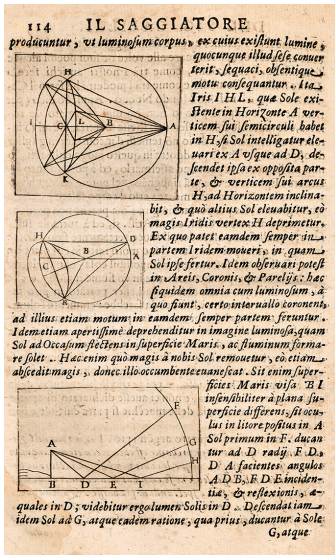 114 IL SAGGIATORE
producuntur, vt luminosum corpus, ex cuius existunt lumine,
quocunque illud sese conuer
terit, sequaci, obsentique
motu consequantur. Ita
Iris I H L, quæ Sole exi-
stente in Horizonte A ver-
ticem sui semicirculi habet
in H, si Sol intelligatur ele-
uari ex A vsque ad D, de-
scendet ipsa ex opposita par-
te, & verticem sui arcus
H, ad Horizontem inclina-
bit, & quò altius Sol eleuabitur, eò
magis Iridis vertex H deprimetur.
Ex quo patet eamdem semper in
partem Iridem moueri, in quam
Sol ipse fertur. Idem obseruari potest
in Areis, Coronis, & Parelijs: hæc
siquidem omnia cum luminosum, à
quo fiunt, certo interuallo coronent,
ad illius etiam motum in eamdem semper partem feruntur.
Idem etiam apertissimè deprehenditur in imagine luminosa, quam
Sol ad Occasum flectens in superficie Maris, ac fluminum forma-
re solet. Hæc enim quò magis à nobis Sol remouetur, eò etiam
abscedit magis, donec illo occumbente euanescat. Sit enim super-
ficies Maris visa B I
insensibiliter à plana su-
perficie differens, sit ocu-
lus in litore positus in A
Sol primum in F. ducan
tur ad D radij F D,
D A facientes angulos
A D B, F D E inciden-
tiæ, & reflexionis, æ-
quales in D; videbitur ergo lumen Solis in D. Descendat iam
idem Sol ad G, atque eadem ratione, qua prius, ducantur à Sole
G, atque
H
I
C
L
B
A
K
H
D
B
A
C
K
F
G
H
A
B
D
E
I